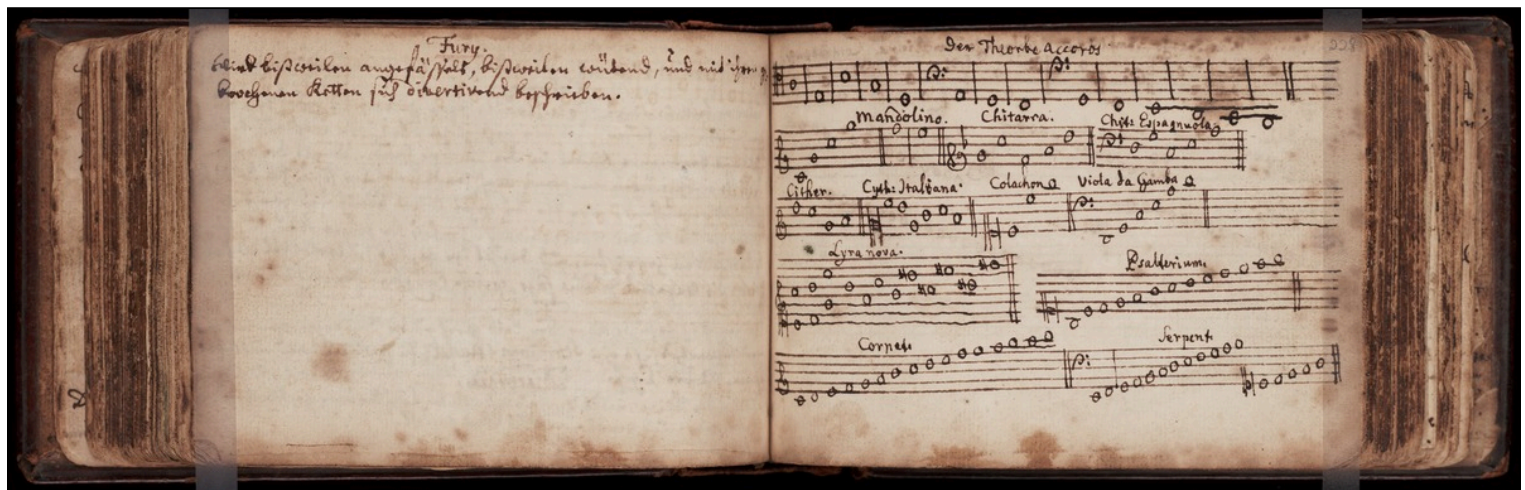 Fury.
Wird bißweilen angefässelt, bißweilen wütend, und mit ihren
brochenen Ketten sich divertirend beschrieben.
Der Theorbe Accords
228
Mandolino. Chitarra. Chit: Espagnuola
Cither. Cyth: Italiana. Colachon Viola da Gamba
Lyra nova. Psalterium.
Cornet. Serpent